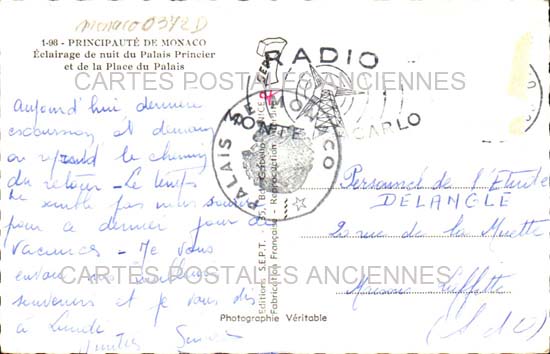 Monaco 0372D
1-98 - PRINCIPAUTÉ DE MONACO
Éclairage de nuit du Palais Princier
et de la Place du Palais
RADIO
MONTE CARLO
PALAIS DE MONACO
CARTES POSTALES ANCIENNES
Aujourd'hui dernière
excursion et demain
on reprend le chemin
du retour - Le temps
ne semble pas nous
pour ce dernier jour de
vacances - Je vous
envoie nos meilleurs
souvenirs et je vous dis
à lundi
Editions S.E.P.T.
Fabrication Française - Reproduction
Personnel de l'Etude
DELANGLE
20 rue de la Muette
Maisons Laffitte
(S et O)
CARTES POSTALES ANCIENNES
Photographie Véritable